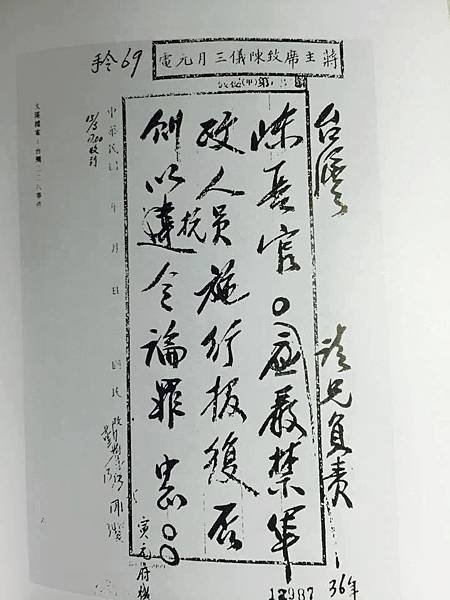 手令69
蔣主席致陳儀三月元電
台灣
請兄負責
陳長官。應嚴禁軍
政人員施行報復否
則以違抗令論罪中正。。
寅元府機
36年
12987
中華民國 年 月 日
大溪檔案:台灣二二八事件